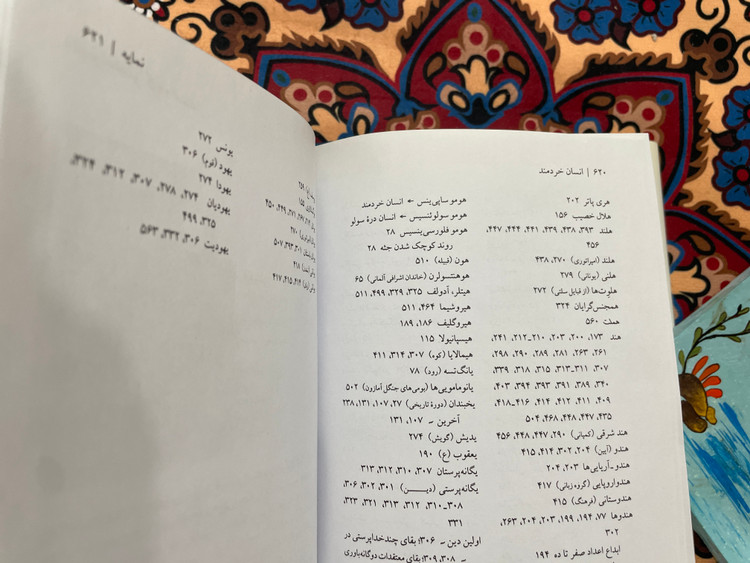 ۶۲۰ | انسان خردمند
هری پاتر ۲۰۲
هلال خصیب ۱۵۶
هلند ۳۹۳، ۴۳۸، ۴۳۹، ۴۴۱، ۴۴۴، ۴۴۷،
۴۵۶
هلند (امپراتوری) ۲۷۰، ۴۳۸
هلنی (یونانی) ۲۷۹
هلوِت‌ها (از قبایل سلتی) ۲۷۲
همجنس‌گرایان ۳۲۴
هملت ۵۶۰
هند ۱۷۳، ۲۰۰، ۲۰۳، ۲۱۰ـ۲۱۲، ۲۴۱،
۲۶۱، ۲۶۳، ۲۸۱، ۲۸۹، ۲۹۰، ۲۹۸،
۳۰۷، ۳۱۱ـ۳۱۳، ۳۱۵، ۳۱۸، ۳۳۹،
۳۴۰، ۳۸۹، ۳۹۱، ۳۹۳، ۳۹۴، ۴۰۳،
۴۰۹، ۴۱۱، ۴۱۲، ۴۱۴، ۴۱۶ـ۴۱۸،
۴۳۵، ۴۴۷، ۴۴۸، ۴۶۸، ۵۰۴
هند شرقی (کمپانی) ۲۹۰، ۴۴۷، ۴۴۸، ۴۵۶
هندو (آیین) ۲۰۴، ۳۰۲، ۴۱۴، ۴۱۵
هندو-آریایی‌ها ۲۰۳، ۲۰۴
هندواروپایی (گروه زبانی) ۴۱۷
هندوستانی (فرهنگ) ۴۱۵
هندوها ۷۷، ۱۹۴، ۱۹۹، ۲۰۳، ۲۰۴، ۲۶۳،
۳۰۲
ابداع اعداد صفر تا ده ۱۹۴
هومو ساپی‌ینس ← انسان خردمند
هومو سولوئنسیس ← انسان درهٔ سولو
هومو فلورسی‌ینسیس ۲۸
روند کوچک شدن جثه ۲۸
هون (قبیله) ۵۱۰
هوهنتسولرن (خاندان اشرافی آلمانی) ۶۵
هیتلر، آدولف ۳۲۵، ۳۲۹، ۴۹۹، ۵۱۱
هیروشیما ۴۶۴، ۵۱۱
هیروگلیف ۱۸۶، ۱۸۹
هیسپانیولا ۱۱۵
هیمالایا (کوه) ۳۰۷، ۳۱۴، ۴۱۱
یانگ‌تسه (رود) ۷۸
یانومامویی‌ها (بومی‌های جنگل آمازون) ۵۰۲
یخبندان (دورهٔ تاریخی) ۲۷، ۱۰۷، ۱۳۱، ۲۳۸
آخرین ـ ۱۰۷، ۱۳۱
یدیش (گویش) ۲۷۴
یعقوب (ع) ۱۹۰
یگانه‌پرستان ۳۰۷، ۳۱۰، ۳۱۲، ۳۱۳
یگانه‌پرستی (دین) ۳۰۱، ۳۰۲، ۳۰۶،
۳۰۸ـ۳۱۰، ۳۱۲، ۳۱۳، ۳۲۱، ۳۲۳،
۳۳۱
اولین دین ـ ۳۰۶؛ بقای چندخداپرستی در
ـ ۳۰۸، ۳۰۹؛ بقای معتقدات دوگانه‌باوری
نمایه | ۶۲۱
۴۱۷، ۴۱۵، ۴۱۲
یونس ۲۷۲
یهود (قوم) ۳۰۶
یهودا ۲۷۴
یهودیان ۲۷۴، ۲۷۸، ۳۰۷، ۳۱۲، ۳۲۴،
۳۲۵، ۴۹۹
یهودیت ۳۰۶، ۳۳۲، ۵۶۳